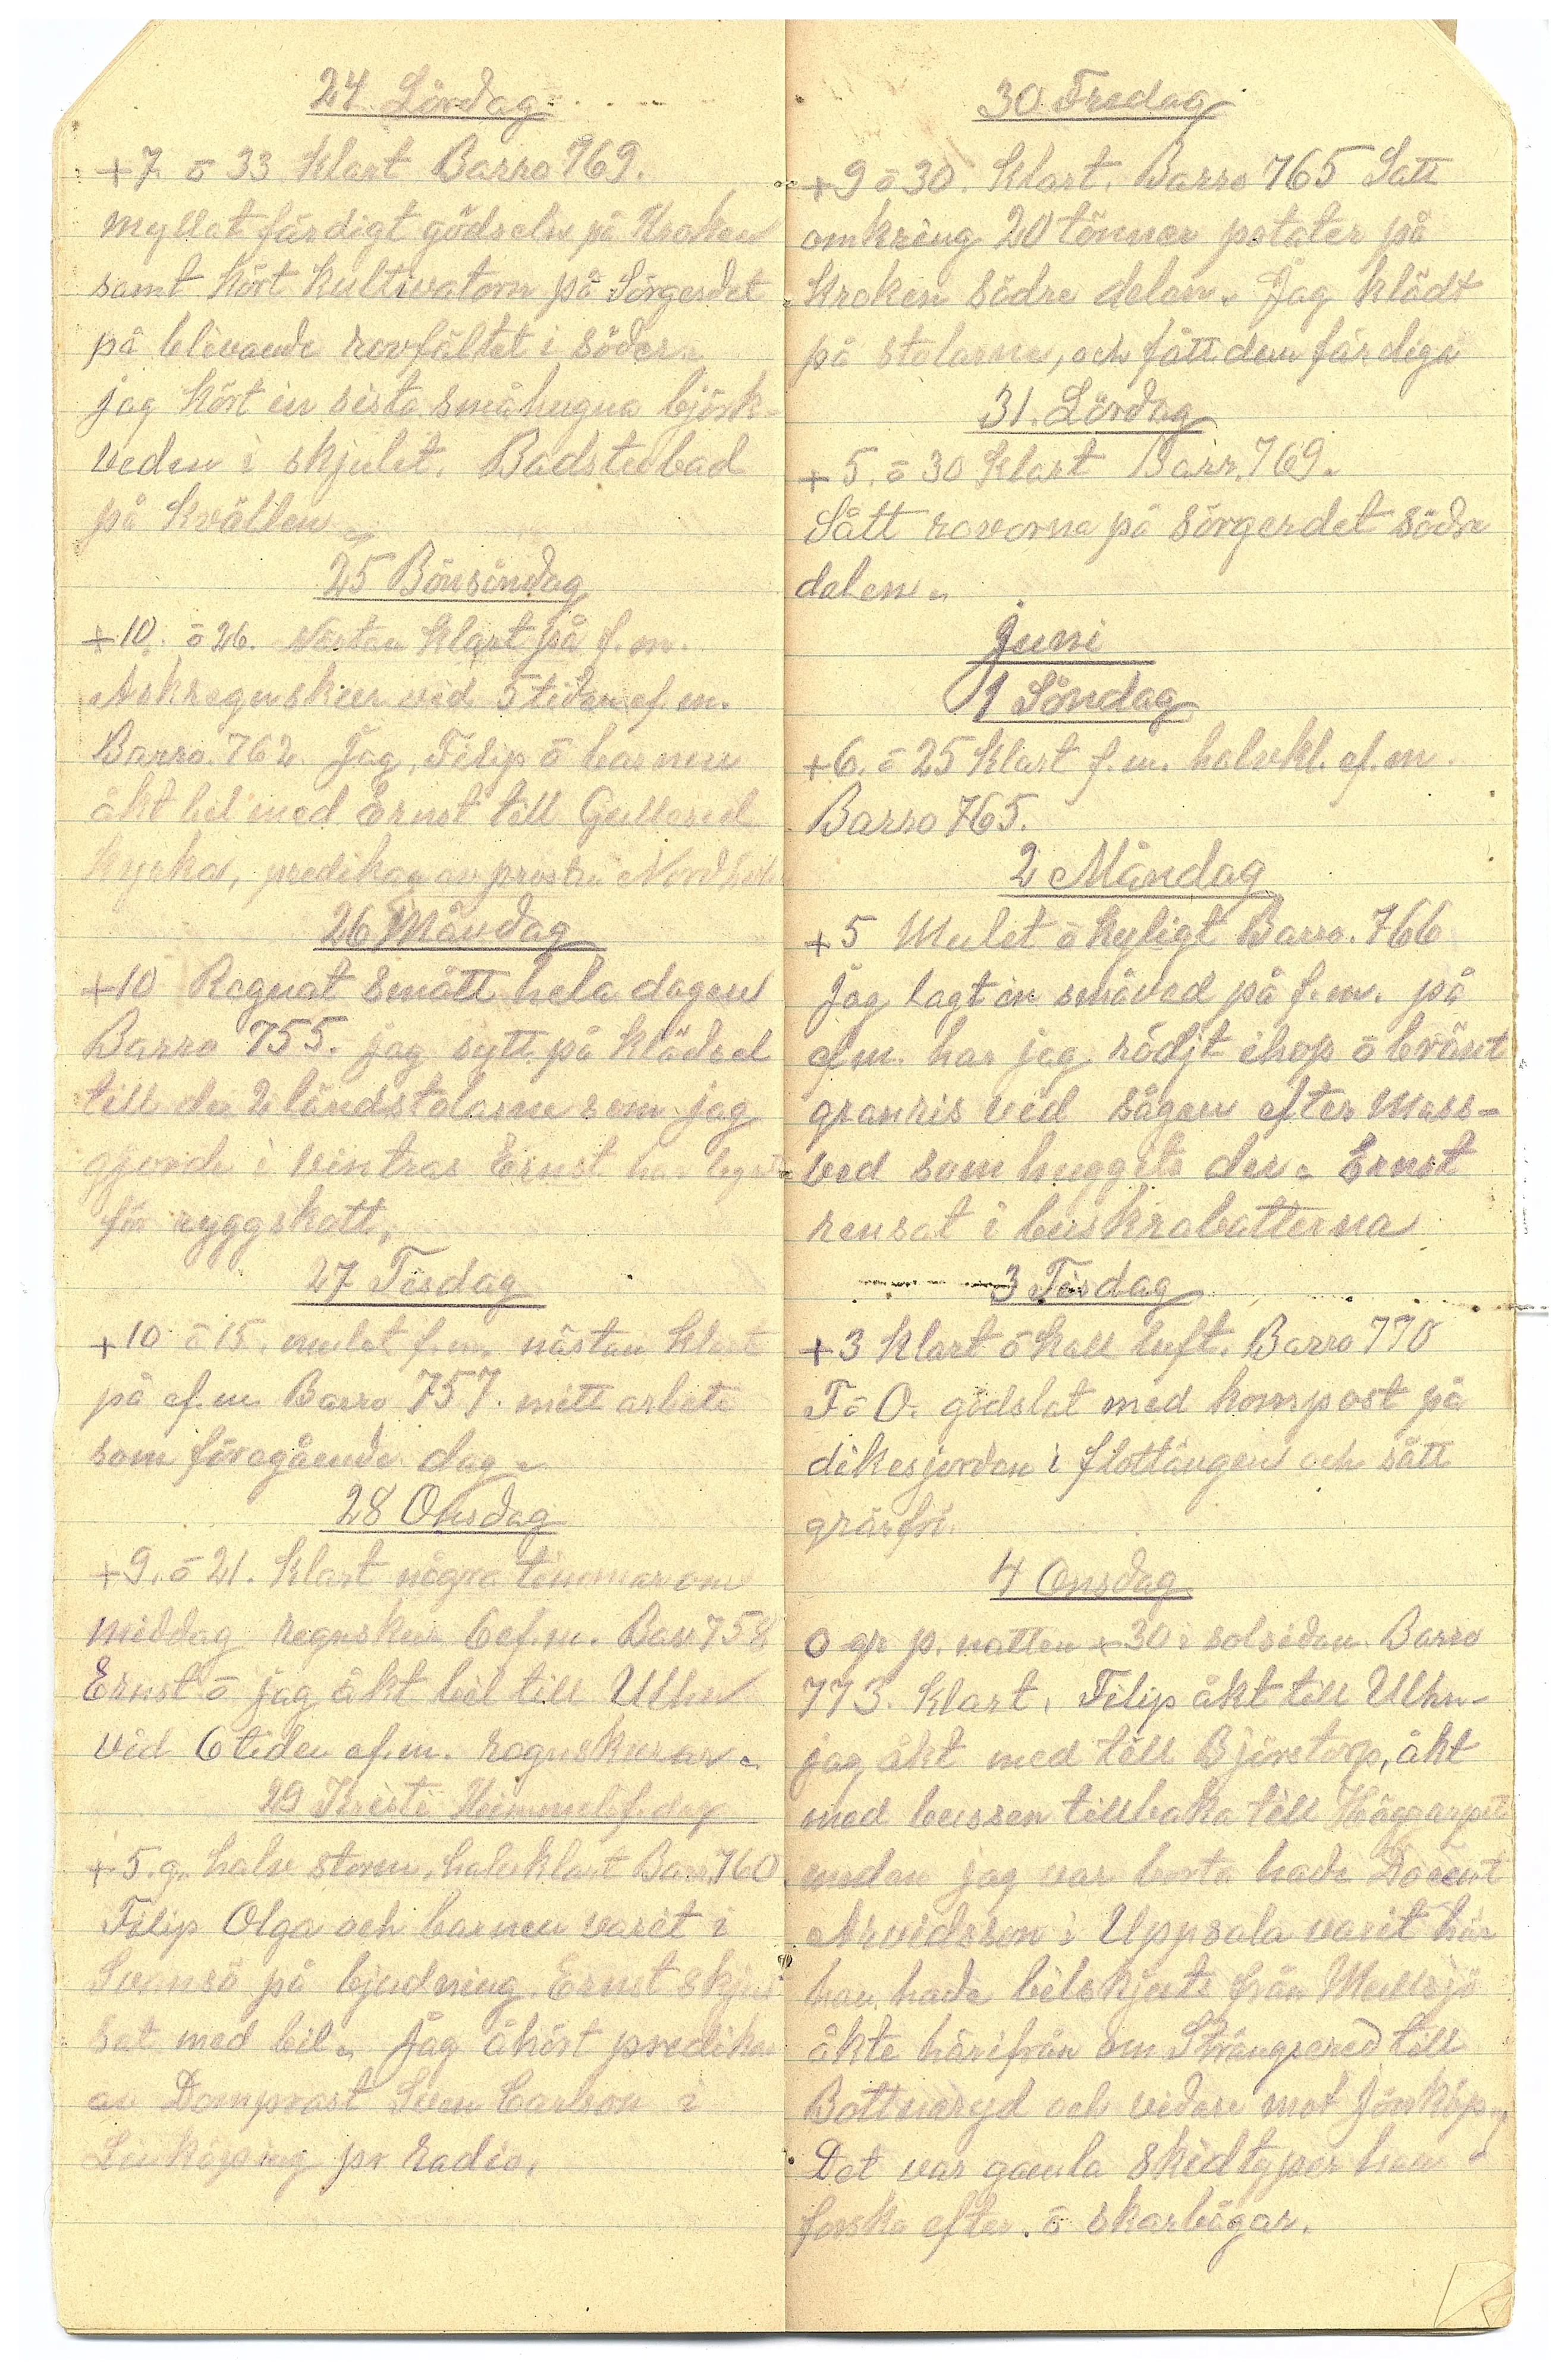 24 Lördag
+7 ō 33 Klart Barro 769.
myllat färdigt gödseln på Kroken
samt kört kultivatorn på Sörgerdet
på blivande rovfältet i söder.
jag kört in sista småhugna björk-
veden i skjulet. Badstubad
på kvällen
25 Bönsöndag
+10. ō 26. Nästan klart på f.m.
Åskregnskur vid 5 tiden ef.m.
Barro. 762. Jag, Filip ō barnen
åkt bil med Ernst till Gullered
kyrka, predikan av prosten
26 Måndag
+10 Regnat smått hela dagen
Barro 755. jag sytt på klädsel
till de 2 ländstolarne som jag
gjorde i vintras Ernst har legat
för ryggskott.
27 Tisdag
+10 ō 15. mulet f.m. nästan klart
på ef.m Barro 757. mitt arbete
som föregående dag.
28 Onsdag
+9. ō 21. Klart några timmar om
middag regnskur 6 ef.m. Bar 758
Ernst ō jag åkt bil till Ulhn
vid 6 tiden ef.m. regnskurar.
29 Kristi Himmelsf. dag
+5. g. halv storm, halvklart Barr 760
Filip Olga och barnen varit i
Svansö på bjudning. Ernst skjus
sat med bil. Jag åhört predikan
av Domprost Sven Carlson i
Linköping pr radio.
30 Fredag
+9 ō 30. Klart. Barro 765 Satt
omkring 20 tönner potater på
Kroken södre delen. Jag klädt
på stolarne, och fått dem färdiga
31. Lördag
+5. ō 30 Klart Barr. 769.
Sått rovorna på sörgerdet södre
delen.
Juni
1 Söndag
+6. ō 25 Klart f.m. halvkl. ef.m.
Barro 765.
2 Måndag
+5 Mulet ō kyligt Barro. 766
Jag lagt in småved på f.m. på
ef.m. har jag rödjt ihop ō bränt
granris vid sågen efter Mass-
ved som huggits der. Ernst
rensat i buskrabatterna
3 Tisdag
+3 klart ō kall luft. Barro 770
F ō O. gödslat med kompost på
dikesjorden i flottängen och sått
gräsfrö.
4 Onsdag
0 gr p. natten + 30 i solsidan. Barro
773. Klart. Filip åkt till Ulhn-
jag åkt med till Björstorp, åkt
med bussen tillbaka till Häggarpet
medan jag var borta hade Docent
Arvidsson i Uppsala varit här
han hade bilskjuts från Mullsjö
åkte härifrån om Strängsered till
Bottnaryd och vidare mot Jönköp.
Det var gamla skidtyper han
forska efter. ō skarbågar.